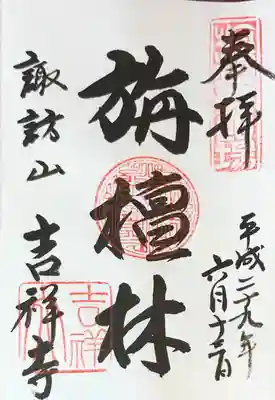 奉拝
平成二十九年
六月十二日
旃檀林
諏訪山 吉祥寺
吉祥寺